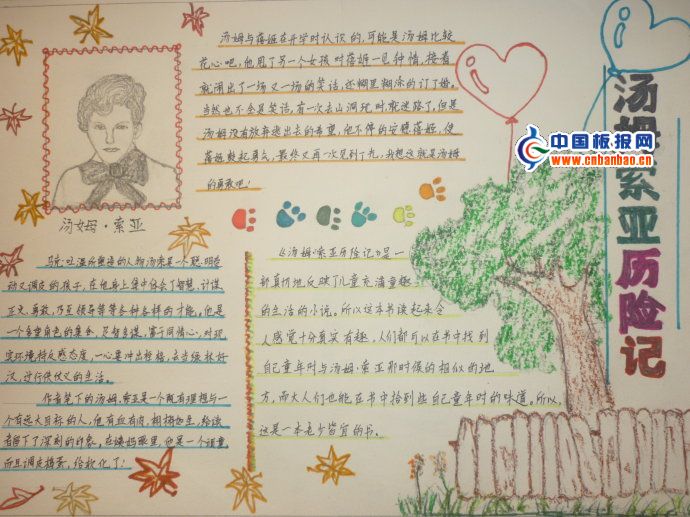 汤姆·索亚历险记
汤姆与蓓姬在开学时认识的,可能是汤姆比较
花心吧,他甩了另一个女孩时蓓姬一见钟情,接着
就闹出了一场又一场的笑话,还糊里糊涂的订了婚。
当然也不全是笑话,有一次去山洞玩时就迷路了,但是
汤姆没有放弃逃出去的希望,他不停的安慰蓓姬,使
蓓姬鼓起勇气,最终又再一次见到了光,我想这就是汤姆
的勇敢吧!
汤姆·索亚
马克·吐温所塑造的人物汤姆是一个聪明好
动又调皮的孩子,在他身上集中体会了智慧、计谋
正义、勇敢,乃至领导等等多种各样的才能,他是
一个多重角色的集合,足智多谋,富于同情心,对现
实环境持反感态度,一心要冲出桎梏,去当绿林好
汉,过行侠仗义的生活。
作者笔下的汤姆·索亚是一个既有理想与一
个有远大目标的人,他有血有肉,栩栩如生,给读
者留下了深刻的印象。在姨妈眼里,他是一个顽童,
而且调皮捣蛋,
《汤姆·索亚历险记》是一
部真切地反映了儿童充满童趣
的生活的小说。所以这本书读起来令
人感觉十分真实有趣,人们都可以在书中找到
自己童年时与汤姆·索亚那时候的相似的地
方,而大人们也能在书中拾到些自己童年时的味道。所以,
这是一本老少皆宜的书。
中国板报网
www.cnbanbao.cn